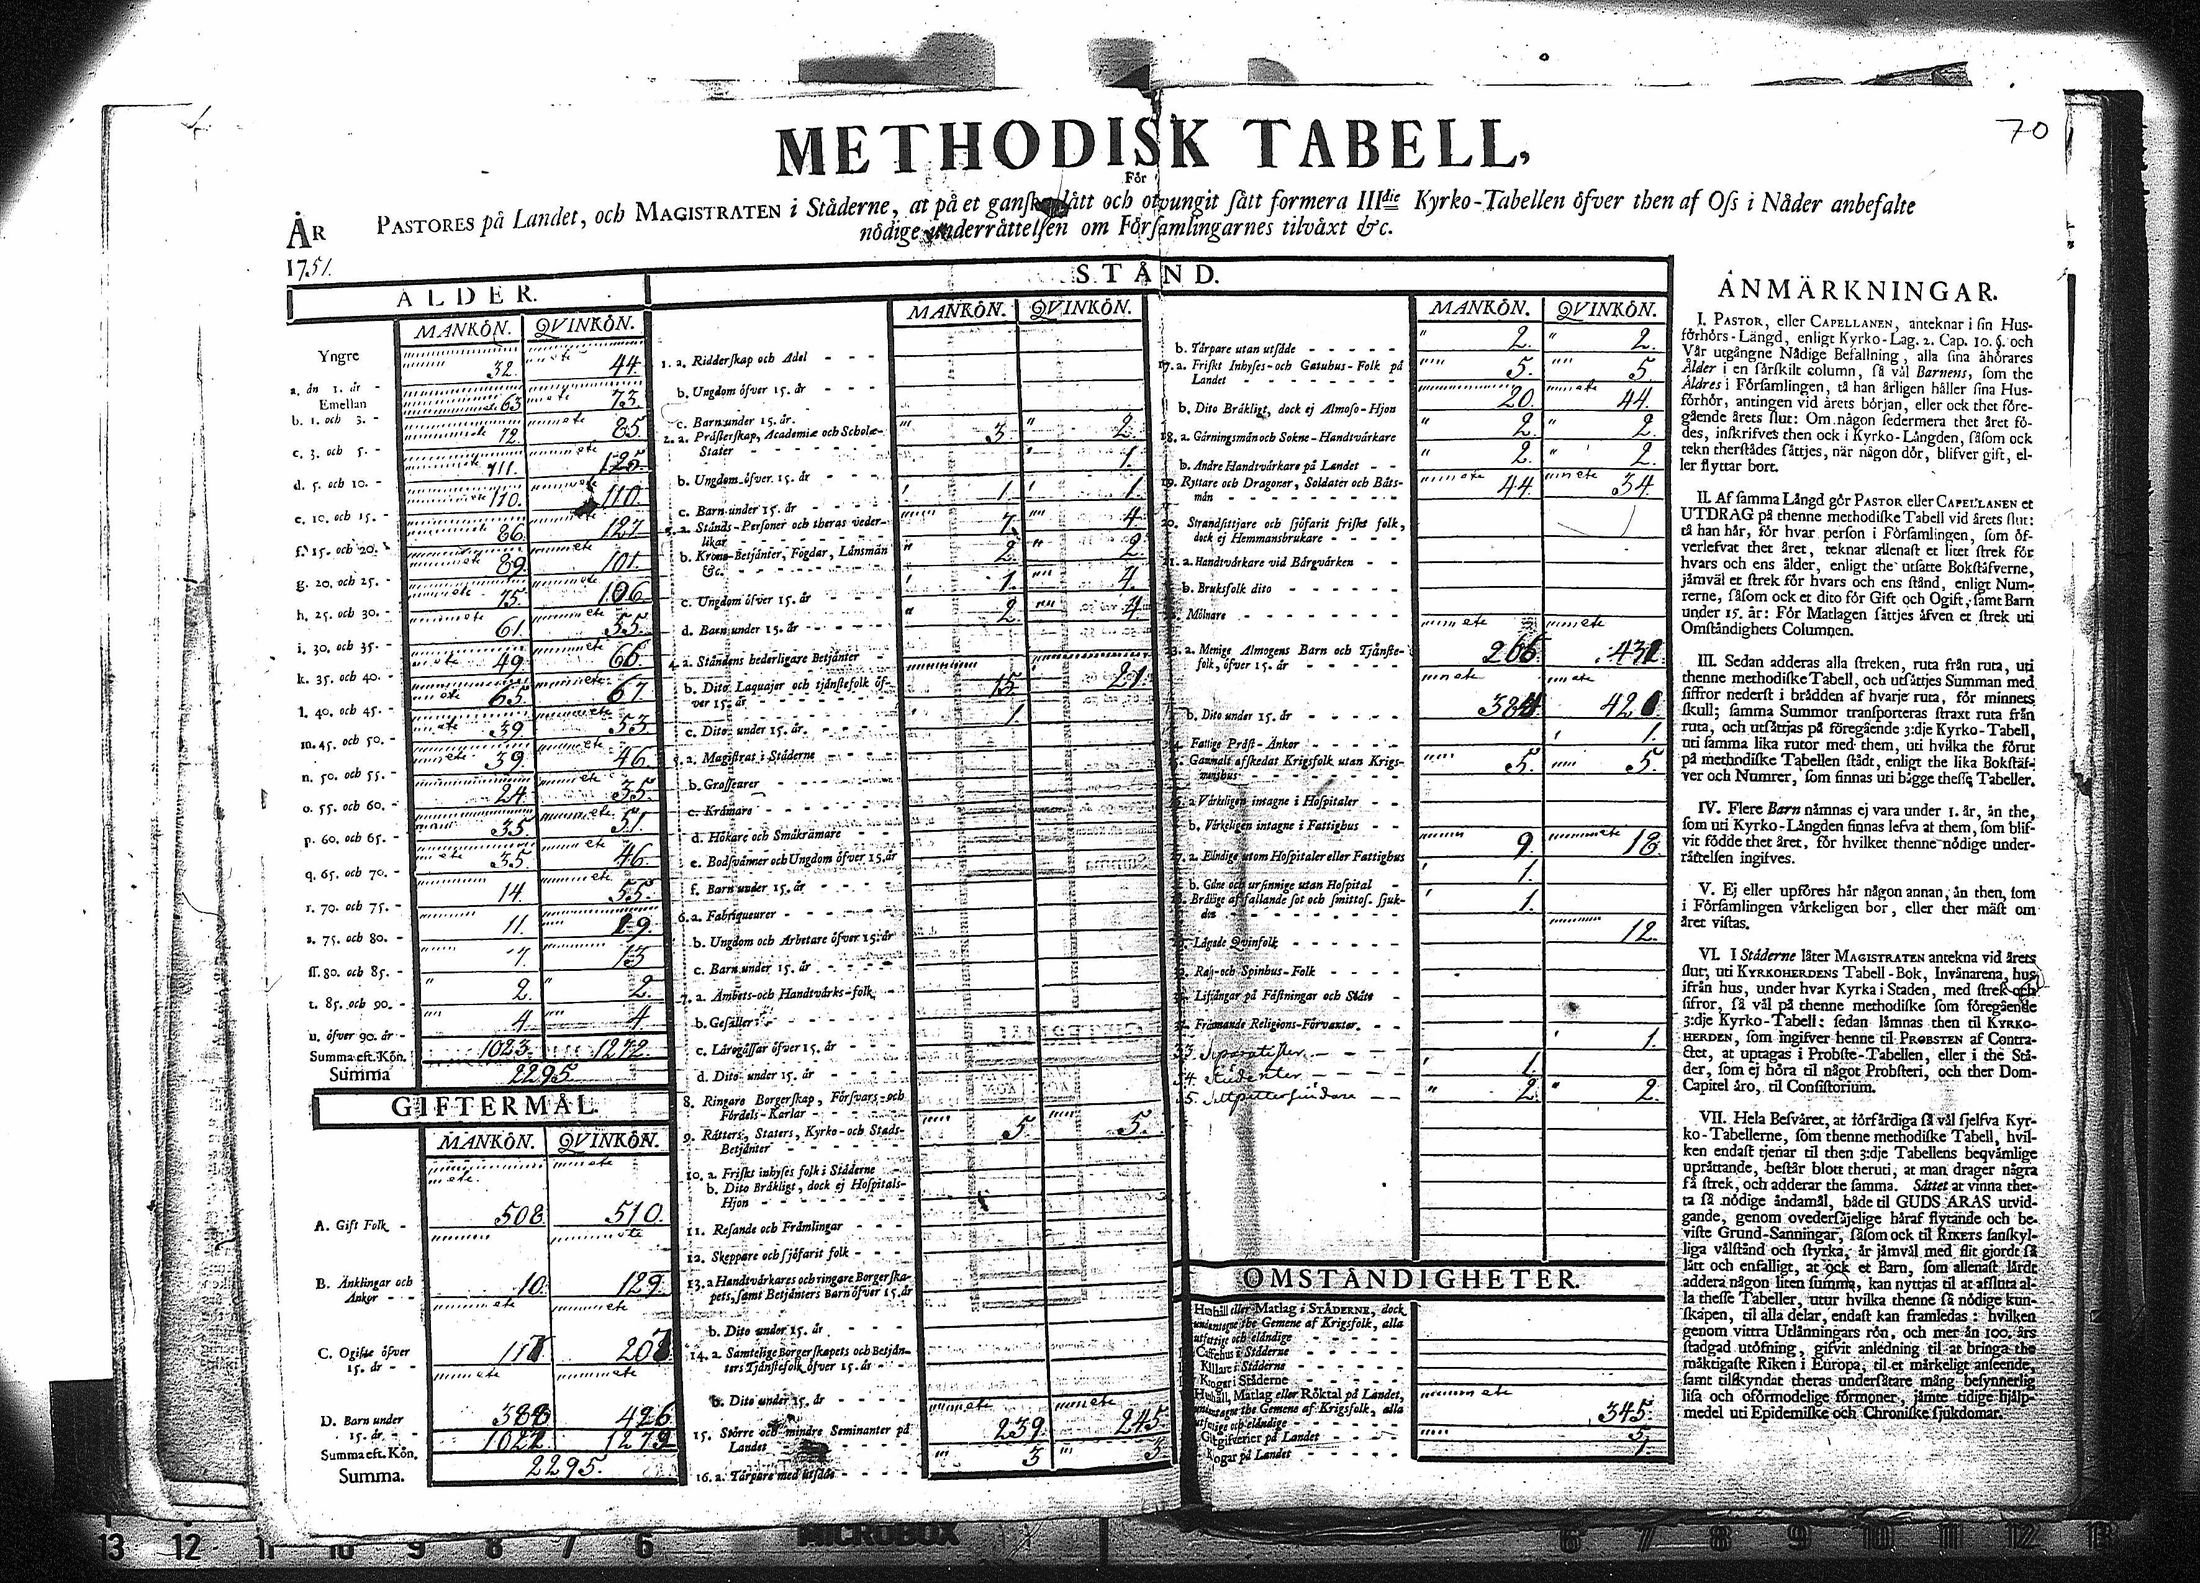 70
METHODISK TABELL,
För
PASTORES på Landet, och MAGISTRATEN i Ståderne, at på et ganska lått och otvungit sått formera IIIdie Kyrko-Tabellen öfver then af Oss i Nåder anbefalte
nödige underråttelsen om Församlingarnes tilvåxt &c.
ÅR
1751.
ÅLDER.
MANKÖN. QVINKÖN.
Yngre
a. ån 1. år - 32. 44.
Emellan
b. 1. och 3. - 63 73.
c. 3. och 5. - 72. 85.
d. 5. och 10. - 111. 125.
e. 10. och 15. - 110. 110.
f. 15. och 20. 86. 127.
g. 20. och 25. - 89. 101.
h. 25. och 30. - 75. 106.
i. 30. och 35. - 61. 55.
k. 35. och 40. - 49. 66.
l. 40. och 45. - 65. 67.
m. 45. och 50. - 39. 53.
n. 50. och 55. - 39. 46.
o. 55. och 60. - 24. 35.
p. 60. och 65. - 35. 51.
q. 65. och 70. - 35. 46.
r. 70. och 75. - 14. 55.
s. 75. och 80. - 11. 19.
ss. 80. och 85. - 7. 13
t. 85. och 90. - 2. 2.
u. öfver 90. år - 4. 4
Summa eft. Kön. 1023. 1272.
Summa 2295.
GIFTERMÅL.
MANKÖN. QVINKÖN.
A. Gift Folk - 508. 510.
B. Änklingar och
Änkor - - 10. 129.
C. Ogifte öfver
15. år - -
D. Barn under
15. år - -
Summa eft. Kön.
Summa. 2295.
STÅND.
MANKÖN. QVINKÖN.
1. a. Ridderskap och Adel - - -
b. Ungdom öfver 15. år - - -
c. Barn under 15. år.
2. a. Pråsterskap, Academiæ och Scholæ-
Stater - - - - - 3. 2.
b. Ungdom öfver. 15. år - - - 1.
c. Barn under 15. år - - - 1. 1.
3. a. Stånds-Personer och theras veder-
likar - - - - 7. 4.
b. Krono-Betjånter, Fogdar, Lånsmån
&c. - - - - 2. 2.
c. Ungdom öfver 15. år - - - 1. 4.
d. Barn under 15. år - - - 2 4.
4. a. Ståndens hederligare Betjånter -
b. Dito Laquajer och tjånstefolk öf-
ver 15. år - - - - 15. 21.
c. Dito under 15. år. - - - 1.
5. a. Magistrat i Ståderne - - -
b. Grosserer - - - -
c. Kråmare - - - -
d. Hökare och Småkråmare - - -
e. Bodsvånner och Ungdom öfver 15. år
f. Barn under 15. år - - -
6. a. Fabriqueurer - - - -
b. Ungdom och Arbetare öfver 15. år
c. Barn under 15. år - - -
7. a. Åmbets-och Handtvårks-folk -
b. Gesåller - - - -
c. Lårogåssar öfver 15. år - - -
d. Dito under 15. år - - -
8. Ringare Borgerskap, Försvars-och
Fördels-Karlar - - - -
9. Råtters, Staters, Kyrko-och Stads-
Betjånter - - - - 5 5.
10. a. Friskt inhyses folk i Ståderne -
b. Dito Bråkligt, dock ej Hospitals-
Hjon - - - -
11. Resande och Fråmlingar - - -
12. Skeppare och sjöfarit folk - - -
13. a Handtvårkares och ringare Borgerska-
pets, samt Betjånters Barn öfver 15. år
b. Dito under 15. år - - -
14. a. Samtelige Borgerskapets och Betjån-
ters Tjånstefolk öfver 15. år - - -
b. Dito under 15. år - - -
15. Större och mindre Seminanter på
Landet - - - - 239. 245.
16. a. Torpare med utsåde - - - 3 3.
MANKÖN. QVINKÖN.
b. Torpare utan utsåde - - - - - 2. 2.
17. a. Friskt Inhyses-och Gatuhus-Folk på
Landet - - - - - 5. 5
b. Dito Bråkligt, dock ej Almoso-Hjon 20. 44.
18. a. Gårningsmån och Sokne-Handtvårkare 2. 2.
b. Andre Handtvårkare på Landet - - 2. 2.
19. Ryttare och Dragoner, Soldater och Båts-
mån - - - - - 44. 34.
20. Strandsittjare och sjöfarit friskt folk,
dock ej Hemmansbrukare - - -
21. a. Handtvårkare vid Bårgvårken - -
b. Bruksfolk dito - - - - -
22. Mölnare - - - - -
23. a. Menige Almogens Barn och Tjånste-
folk, öfver 15. år - - - -
b. Dito under 15. år - - - -
24. Fattige Pråst-Änkor - - - - 1.
25. Gammalt afskedat Krigsfolk utan Krigs-
manshus - - - - - 5. 5.
26. a Vårkeligen intagne i Hospitaler - -
b. Vårkeligen intagne i Fattighus - -
27. a. Elåndige utom Hospitaler eller Fattighus 9. 18.
b. Galne och ursinnige utan Hospital - 1.
28. Brådige affallande sot och smittos. sjuk-
dom - - - - - 1.
29. Lågade Qvinfolk - - - - - 12.
30. Rasp-och Spinhus-Folk - - - -
31. Lifsfångar på Fåstningar och Slåtte -
32. Fråmmande Religions-Förvanter. - -
33. Separatister - - - 1.
34. Studenter - - - - 1.
35. Salpettersiudare - - 2. 2.
OMSTÅNDIGHETER.
Hushåll eller Matlag i STÅDERNE, dock
undantagne the Gemene af Krigsfolk, alla
utfattige och elåndige - - - -
Caffehus i Ståderne - - - -
Kållare i Ståderne - - - -
Krogar i Ståderne - - - -
Hushåll, Matlag eller Röktal på Landet,
undantagne the Gemene af Krigsfolk, alla
utfattige och elåndige - - - - 345.
Gåstgifverier på Landet - - - 5.
Krogar på Landet - - - -
ANMÄRKNINGAR.
I. PASTOR, eller CAPELLANEN, anteknar i sin Hus-
förhörs-Långd, enligt Kyrko-Lag. 2. Cap. 10. §. och
Vår utgångne Nådige Befallning, alla sina åhörares
Ålder i en sårskilt column, så vål Barnens, som the
Åldres i Församlingen, tå han årligen håller sina Hus-
förhör, antingen vid årets början, eller ock thet före-
gående årets slut: Om någon sedermera thet året fö-
des, inskrifves then ock i Kyrko-Långden, såsom ock
tekn therstådes såttjes, når någon dör, blifver gift, el-
ler flyttar bort.
II. Af samma Långd gör PASTOR eller CAPELLANEN et
UTDRAG på thenne methodiske Tabell vid årets slut:
tå han hår, för hvar person i Församlingen, som öf-
verlefvat thet året, teknar allenast et litet strek för
hvars och ens ålder, enligt the utsatte Bokståfverne,
jåmvål et strek för hvars och ens stånd, enligt Num-
rerne, såsom ock et dito för Gift och Ogift, samt Barn
under 15. år: För Matlagen såttjes åfven et strek uti
Omståndighets Columnen.
III. Sedan adderas alla streken, ruta från ruta, uti
thenne methodiske Tabell, och utsåttjes Summan med
siffror nederst i brådden af hvarje ruta, för minnets
skull; samma Summor transporteras straxt ruta från
ruta, och utsåttjas på föregående 3:dje Kyrko-Tabell,
uti samma lika rutor med them, uti hvilka the förut
på methodiske Tabellen stådt, enligt the lika Bokståf-
ver och Numrer, som finnas uti bågge thesse Tabeller.
IV. Flere Barn nåmnas ej vara under 1. år, ån the,
som uti Kyrko-Långden finnas lefva at them, som blif-
vit födde thet året, för hvilket thenne nödige under-
råttelsen ingifves.
V. Ej eller upföres hår någon annan, ån then, som
i Församlingen vårkeligen bor, eller ther måst om
året vistas.
VI. I Ståderne låter MAGISTRATEN antekna vid årets
slut, uti KYRKOHERDENS Tabell-Bok, Invånarena, hus
ifrån hus, under hvar Kyrka i Staden, med strek och
sifror, så vål på thenne methodiske som föregående
3:dje Kyrko-Tabell: sedan låmnas then til KYRKO-
HERDEN, som ingifver henne til PROBSTEN af Contra-
ctet, at uptagas i Probste-Tabellen, eller i the Stå-
der, som ej höra til något Probsteri, och ther Dom-
Capitel åro, til Consistorium.
VII. Hela Besvåret, at förfårdiga så vål sjelfva Kyr-
ko-Tabellerne, som thenne methodiske Tabell, hvil-
ken endast tjenar til then 3:dje Tabellens beqvåmlige
upråttande, beståt blott theruti, at man drager några
få strek, och adderar the samma. Såttet at vinna thet-
ta så nödige åndamål, både til GUDS ÅRAS utvid-
gande, genom ovedersåjelige håraf flytande och be-
viste Grund-Sanningar, såsom ock til RIKETS sanskyl-
liga vålstånd och styrka, år jåmvål med flit gjordt så
lått och enfalligt, at ock et Barn, som allenast lårdt
addera någon liten summa, kan nyttjas til at afsluta al-
la thesse Tabeller, utur hvilka thenne så nödige kun-
skapen, til alla delar, endast kan framledas: hvilken
genom vittra Utlånningars rön, och mer ån 100. års
stadgad utöfning, gifvit anledning til at bringa the
måktigaste Riken i Europa, til et mårkeligt anseende,
samt tilskyndat theras undersåtare mång besynnerlig
lisa och oförmodelige förmoner, jåmte tidige hjålp-
medel uti Epidemiske och Chroniske sjukdomar.
13 12 11 10 9 8 7 6 MICROBOX 6 7 8 9 10 11 12 13